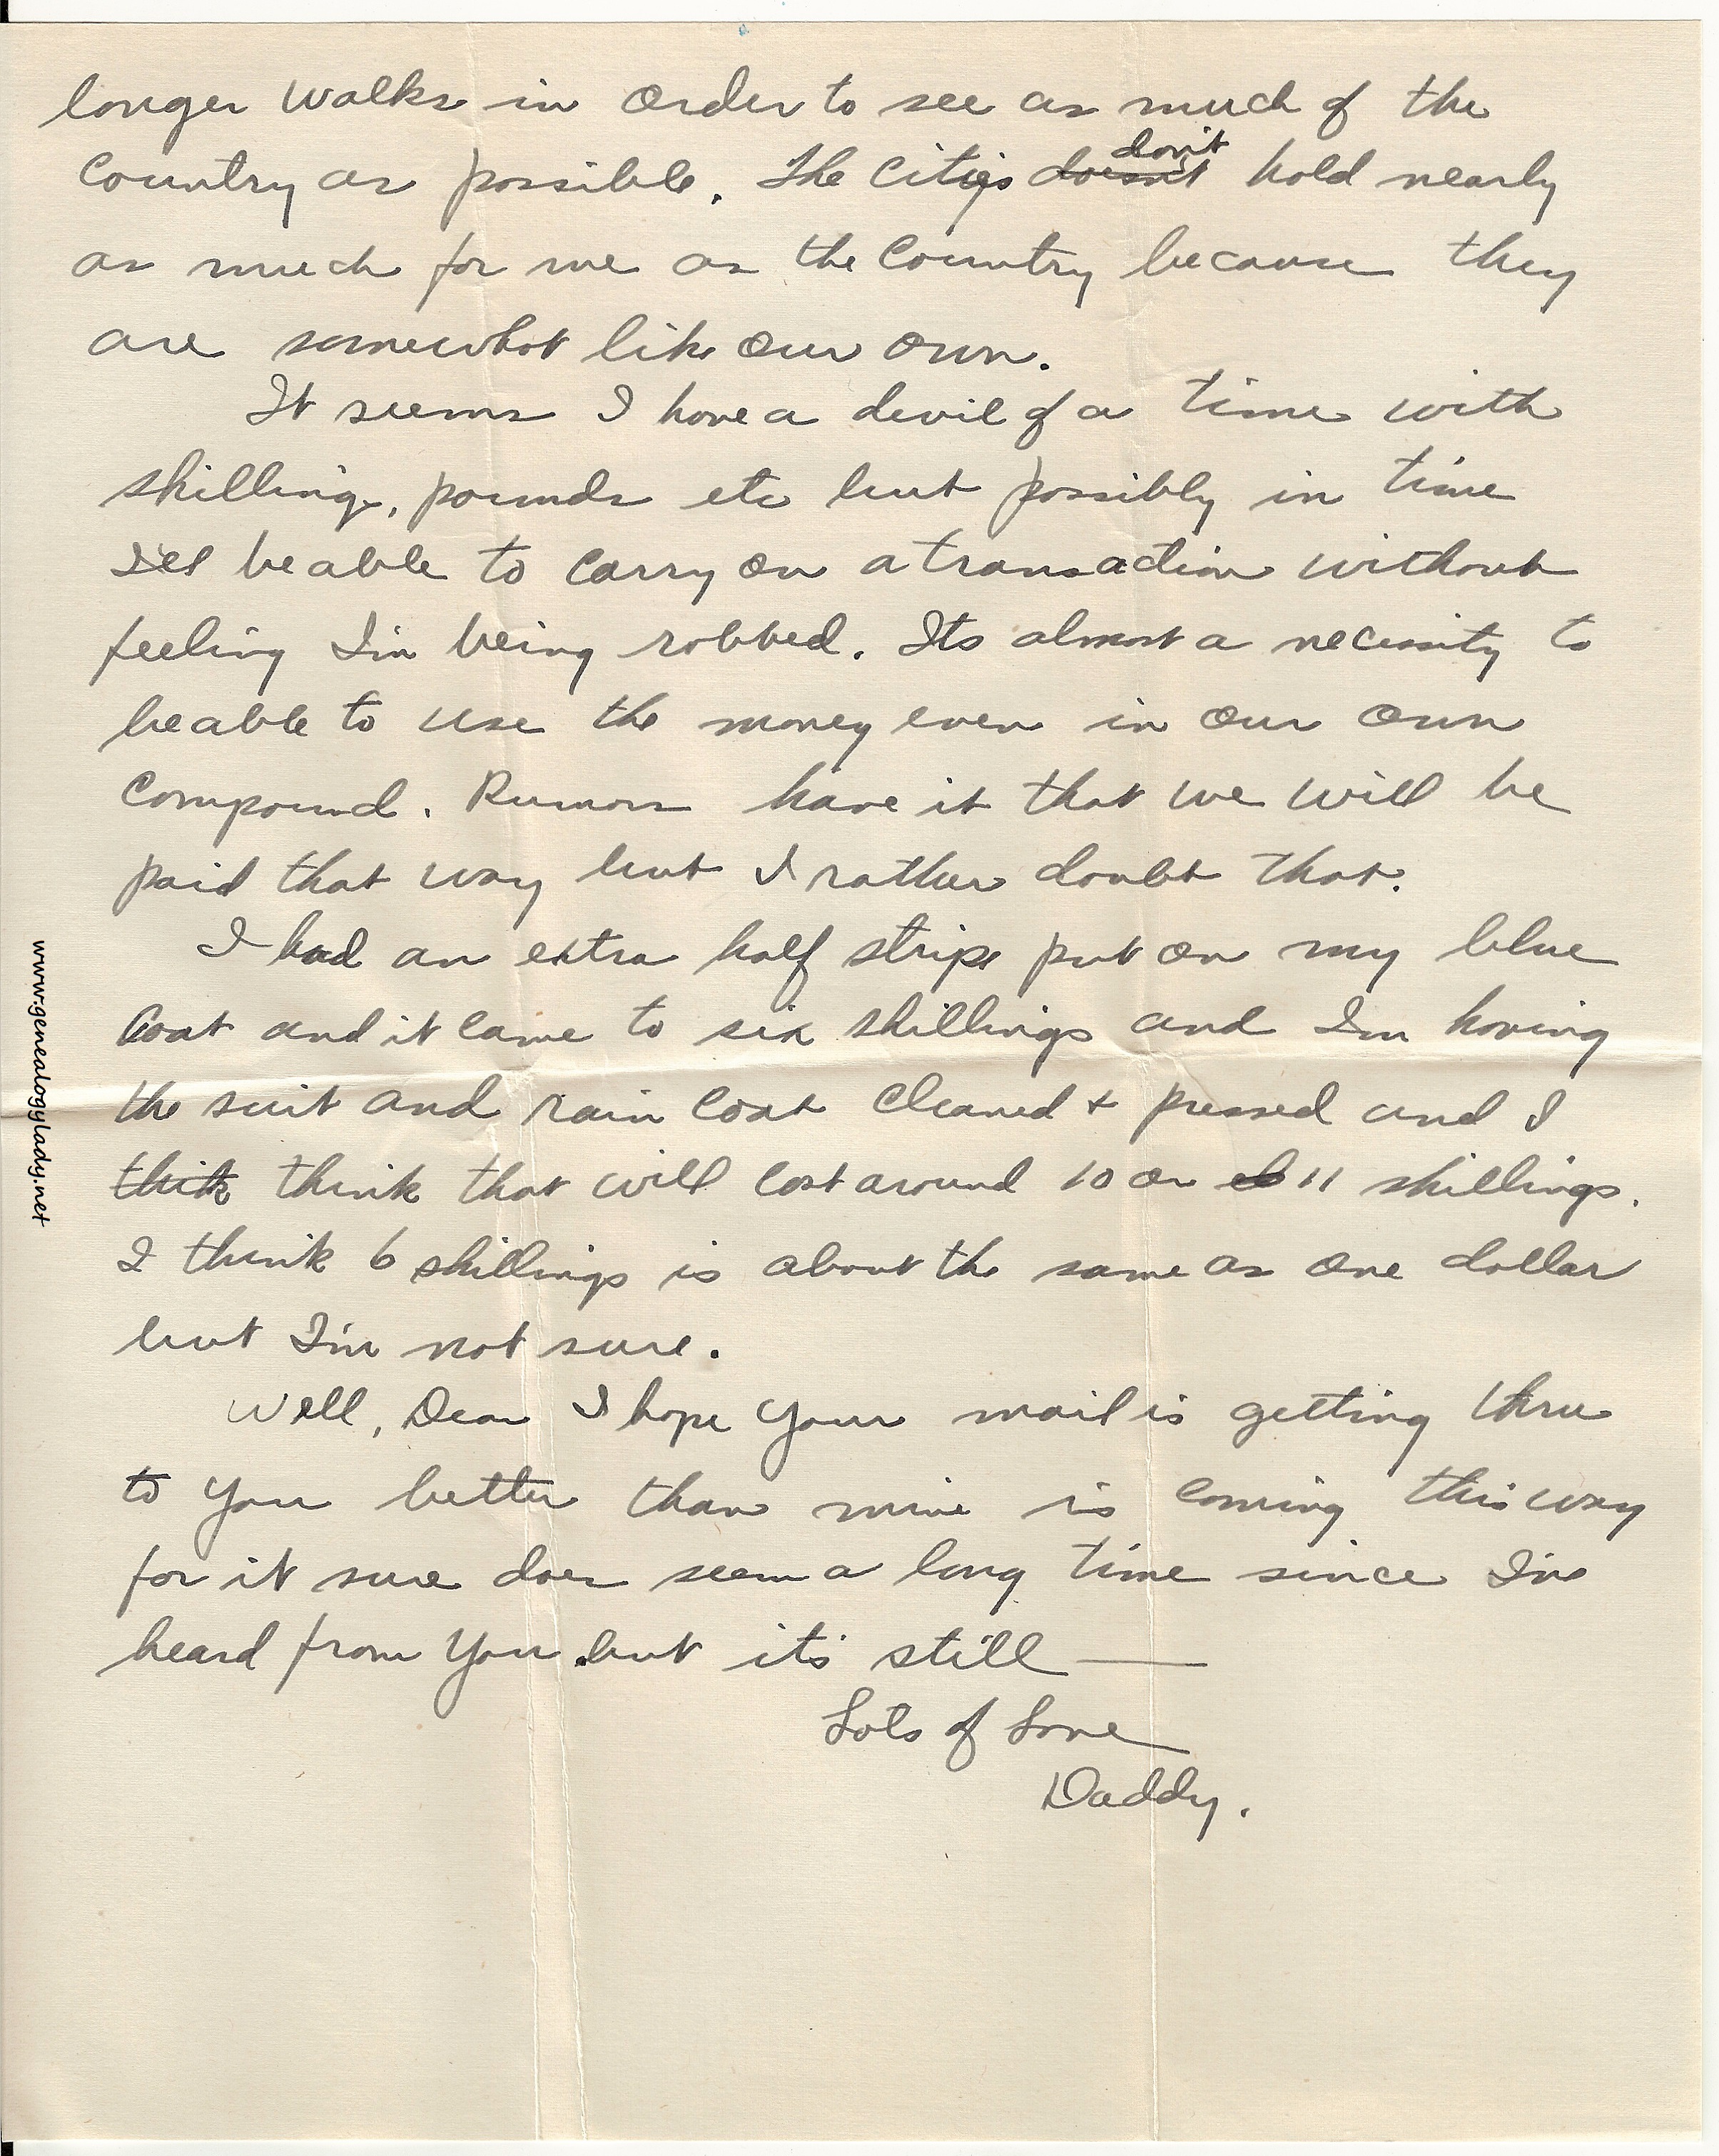 longer walks in order to see as much of the
Country as possible. The Cities doesn't don't hold nearly
as much for me as the Country because they
are somewhat like our own.
It seems I have a devil of a time with
shilling, pounds etc but possibly in time
I'll be able to carry on a transaction without
feeling I'm being robbed. Its almost a necessity to
be able to use the money even in our own
Compound. Rumors have it that we will be
paid that way but I rather doubt that.
I had an extra half stripe put on my blue
Coat and it came to six shillings and Im having
the suit and rain coat cleaned + pressed and I
think think that will cost around 10 or 11 shillings.
I think 6 shillings is about the same as one dollar
but I'm not sure.
Well, Dear I hope your mail is getting thru
to you better than mine is coming this way
for it sure does seem a long time since I've
heard from you but it's still ——
Lots of Love
Daddy.
www.genealogylady.net